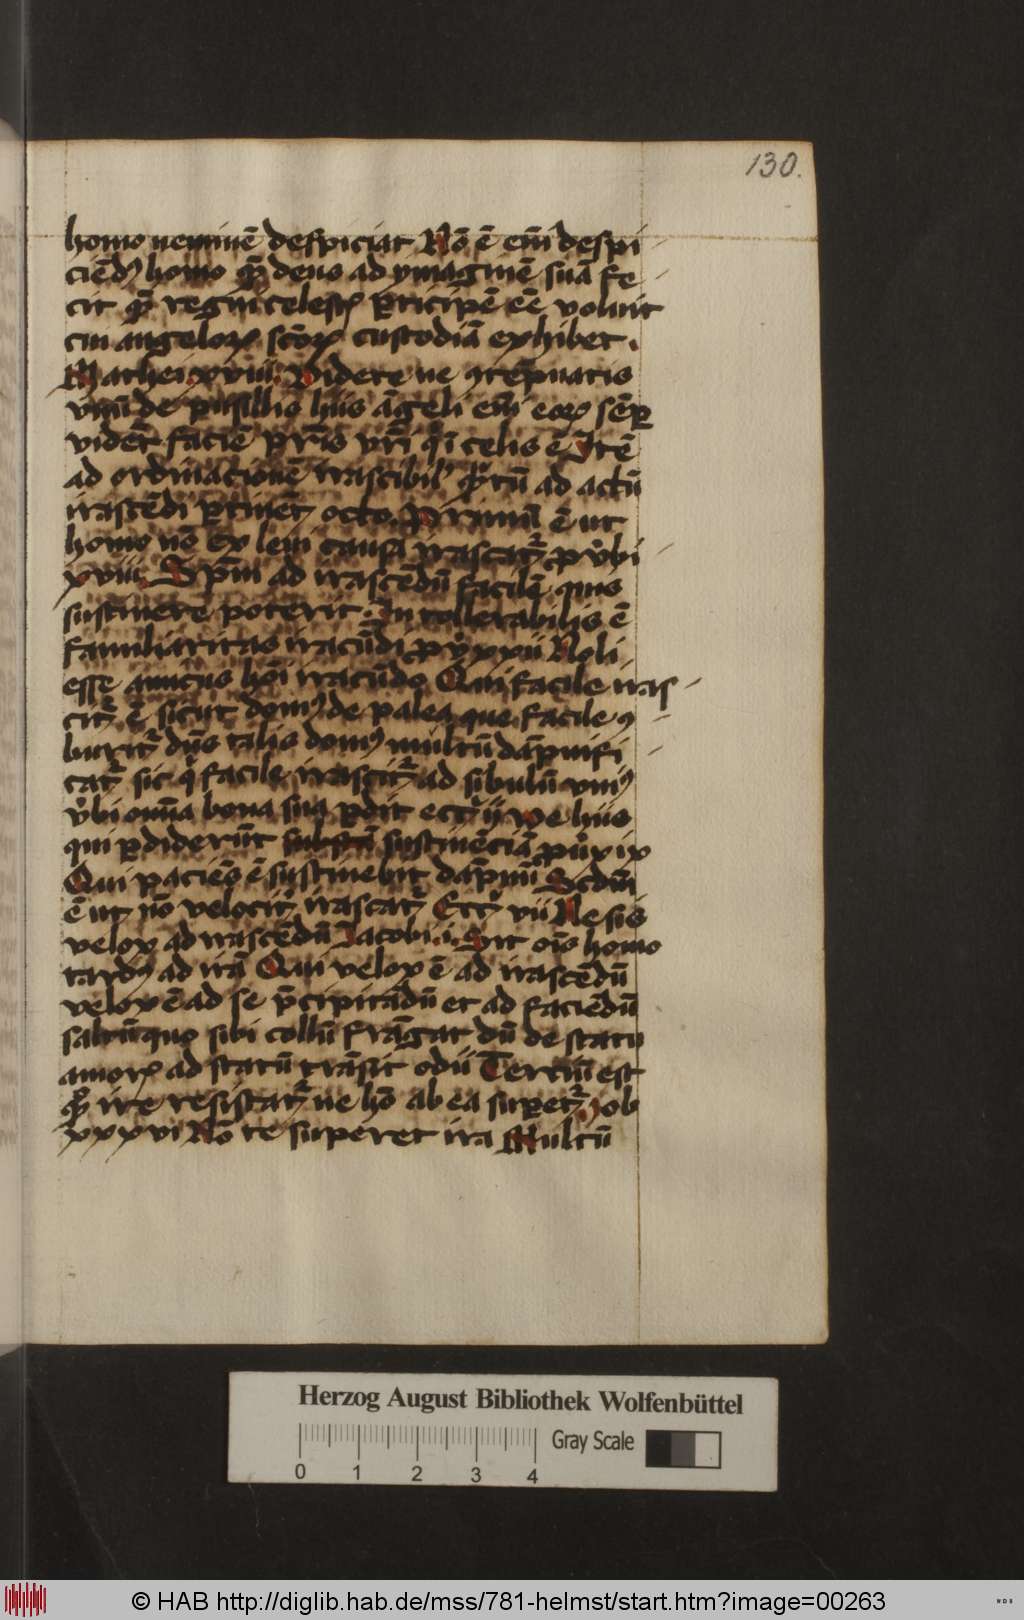 130.
homo neminē despiciat Nō ē em̄ despi
ciēdꝰ homo quē deus ad ymaginē suā fe
cit quē regni celestꝭ ꝑticipē eē voluit
cui angeloꝝ scōꝝ custodiā exhibet.
Mathei xviii. Videte ne ꝯtēpnatis
vnū de pusillis hiis āgeli em̄ eoꝝ sēꝑ
vidēt faciē pr̄is vr̄i qͥ ī celis ē Itē
ad ordinacionē irascibil' quātū ad actū
irascēdi ꝑtinēt octo. Primū ē ut
homo nō ex leui causa irascat᷑ pͮbi
xviii. Spm̄ ad irascēdū facilē quis
sustinere poterit. In tollerabilis ē
familiaritas iracūdi pͮ xxii Noli
esse amicus hoī iracūdo Qui facile iras
cit᷑ ē sicut domꝰ de palea que facile ꝯ
burit᷑ dūs talis domꝰ multū dāpnifi
cat᷑ sic qͥ facile irascit᷑ ad sibulū vniꝰ
v̓bi oīa bona sua ꝑdit eccͥ ij we hiis
qui ꝑdiderūt sustinēciā pͮ xix
Qui paciēs ē sustinebit dāpnū Scdm̄
ē ut nō velocit᷑ irascat᷑ Eccͥ vii Ne sis
velox ad irascēdū Iacobi .i. Sit oīs homo
tardꝰ ad irā Qui velox ē ad irascēdū
velox ē ad se p̄cipitādū et ad faciēdū
saltū quo sibi collū frāgat dū de statu
amorꝭ ad statū trāsit odii Terciū est
quod ire resistat᷑ ne hō ab ea suꝑet᷑ Iob
xxxvi Nō te superet ira Multū
Herzog August Bibliothek Wolfenbüttel
Gray Scale
0 1 2 3 4
© HAB http://diglib.hab.de/mss/781-helmst/start.htm?image=00263